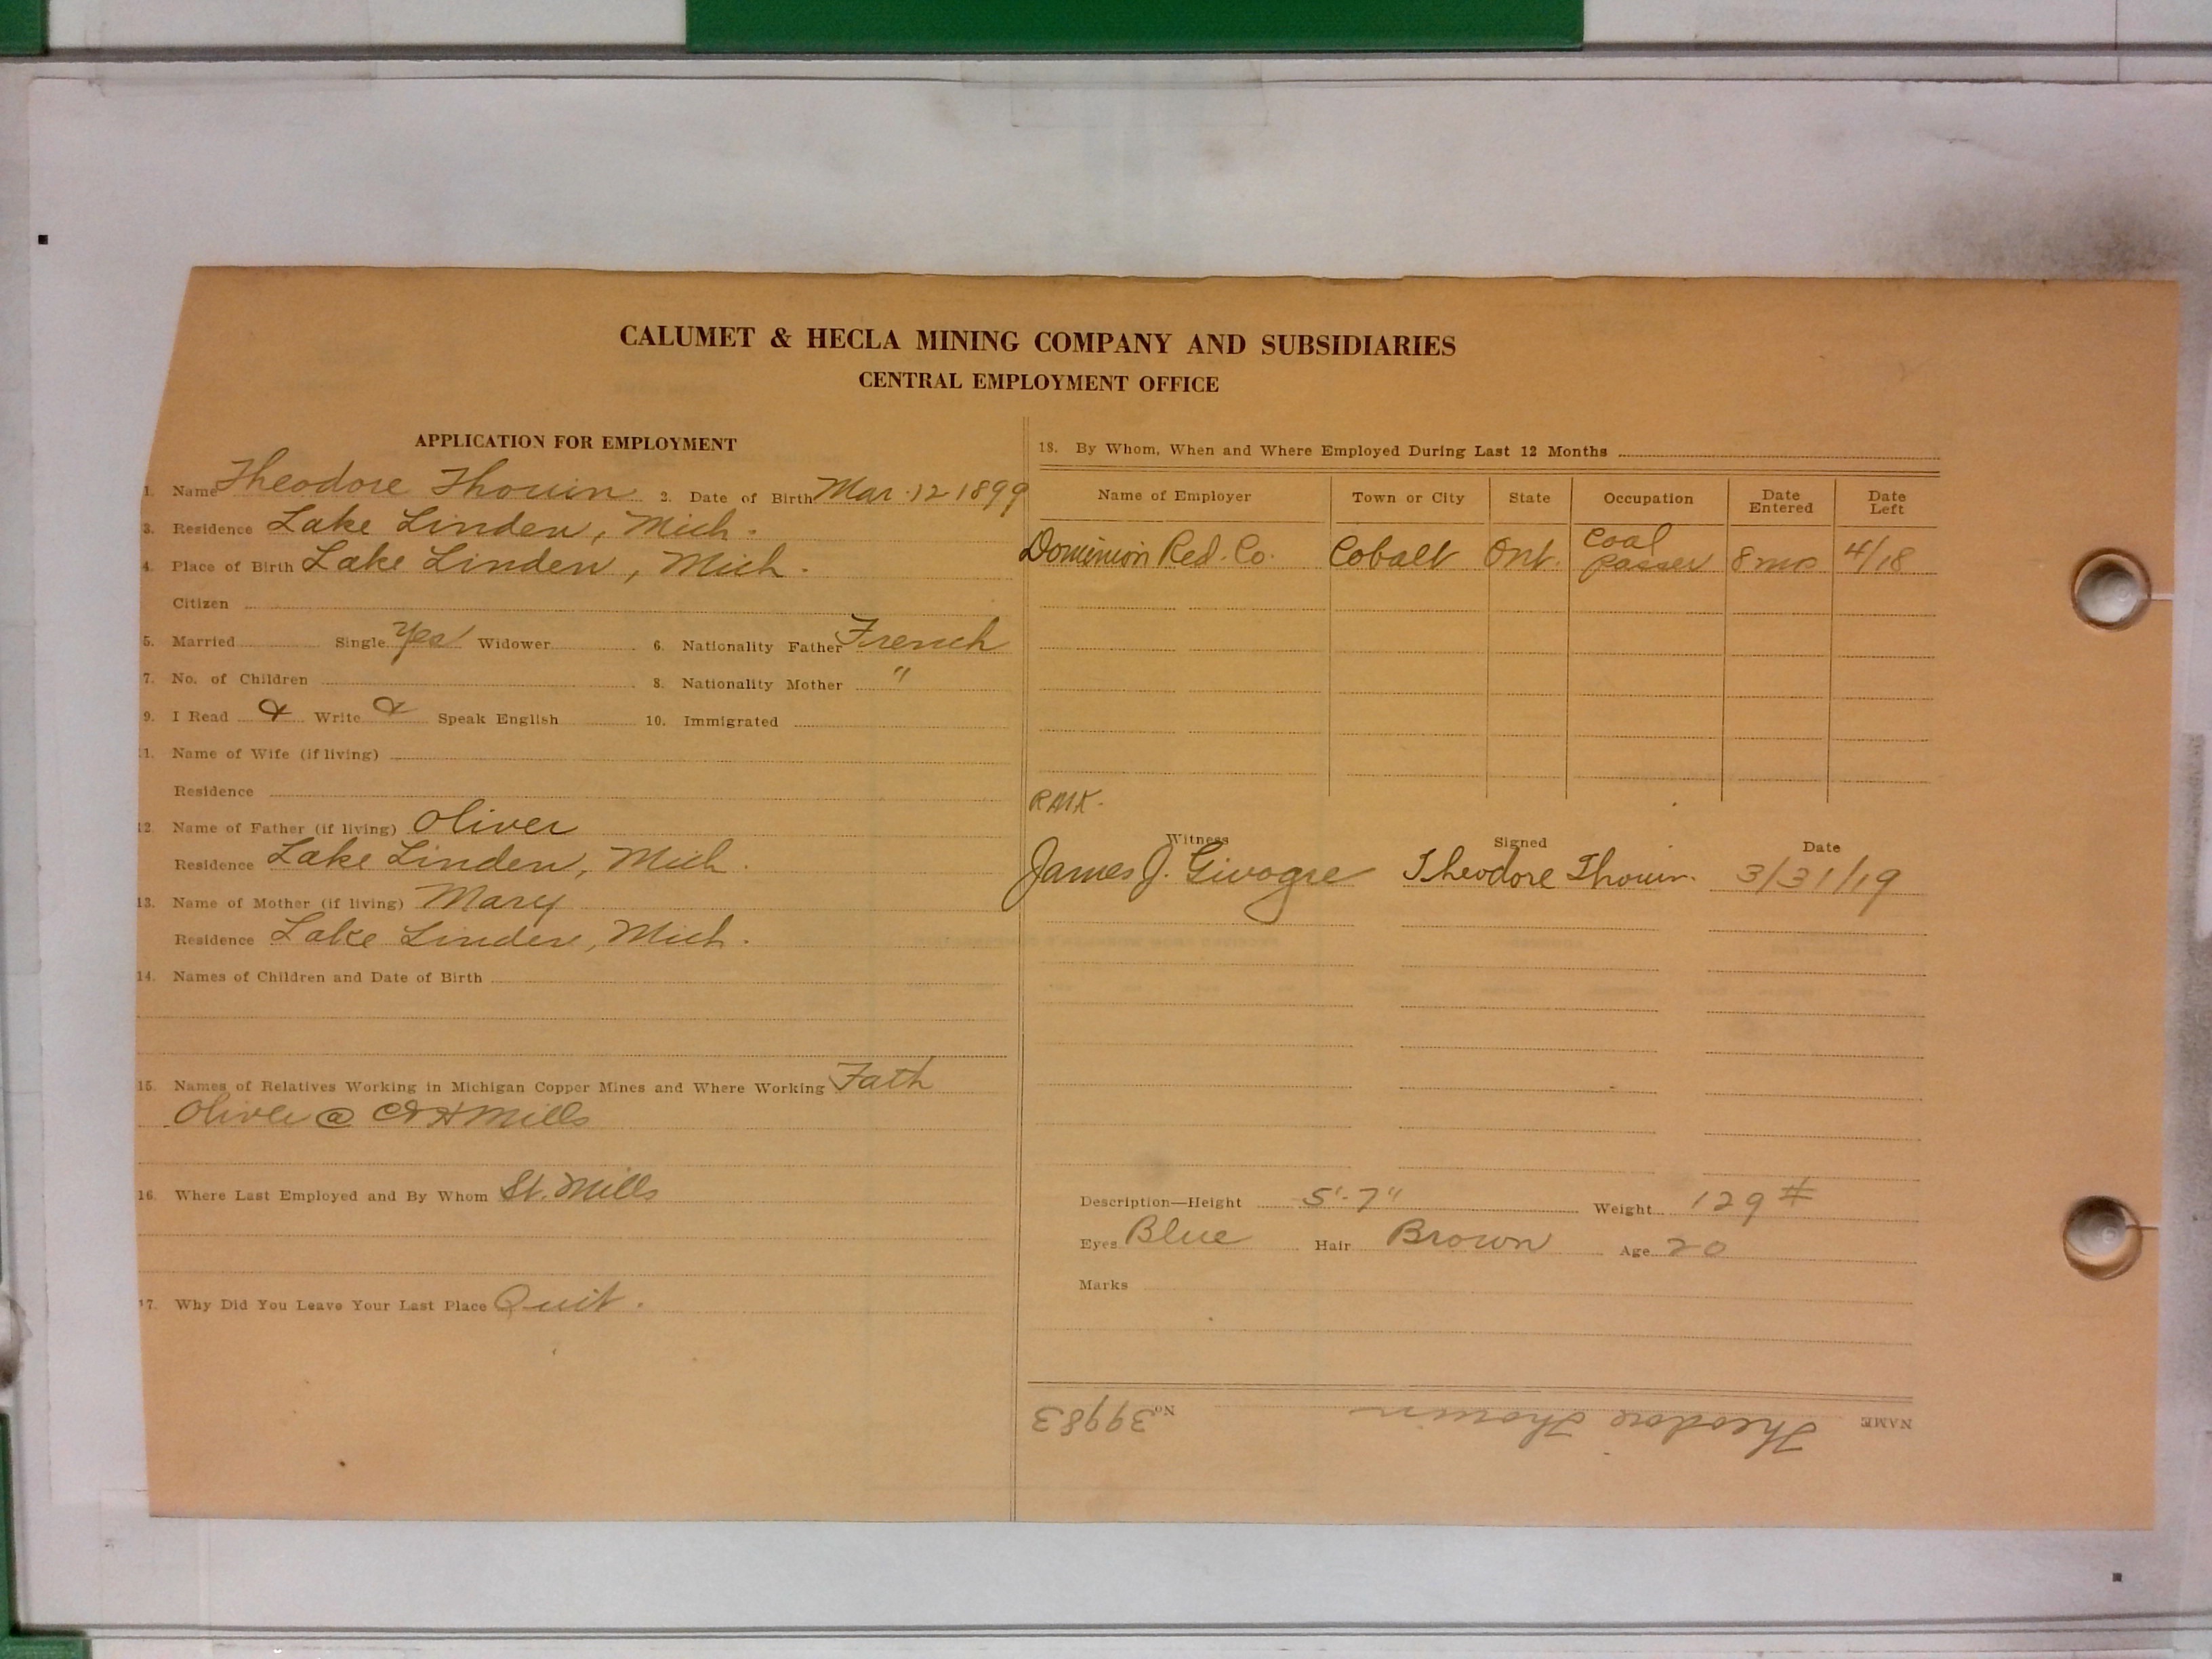 CALUMET & HECLA MINING COMPANY AND SUBSIDIARIES
CENTRAL EMPLOYMENT OFFICE
APPLICATION FOR EMPLOYMENT
1. Name Theodore Thouin 2. Date of Birth Mar. 12 1899
3. Residence Lake Linden, Mich.
4. Place of Birth Lake Linden, Mich.
Citizen
5. Married Single Yes Widower 6. Nationality Father French
7. No. of Children 8. Nationality Mother "
9. I Read & Write & Speak English 10. Immigrated
11. Name of Wife (if living)
Residence
12. Name of Father (if living) Oliver
Residence Lake Linden, Mich.
13. Name of Mother (if living) Mary
Residence Lake Linden, Mich.
14. Names of Children and Date of Birth
15. Names of Relatives Working in Michigan Copper Mines and Where Working Fath
Oliver @ C&H Mills
16. Where Last Employed and By Whom St. Mills
17. Why Did You Leave Your Last Place Quit.
18. By Whom, When and Where Employed During Last 12 Months
Name of Employer Town or City State Occupation Date Entered Date Left
Dominion Red. Co. Cobalt Ont. Coal Passer 8 mo 4/18
RMK.
Witness Signed Date
James J. Theodore Thouin. 3/31/19
Description—Height 5'-7" Weight 129 #
Eyes Blue Hair Brown Age 20
Marks
NAME Theodore Thouin No. 39983